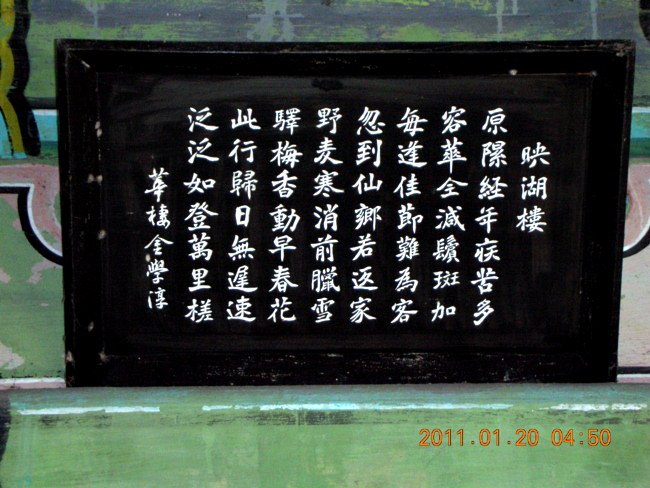 映湖樓
原隰経年疾苦多
容華全減鬢斑加
每逢佳節難為客
忽到仙鄉若返家
野麦寒消前臘雪
驛梅香動早春花
此行歸日無遲速
泛泛如登萬里槎
華棲金學淳
2011.01.20 04:50